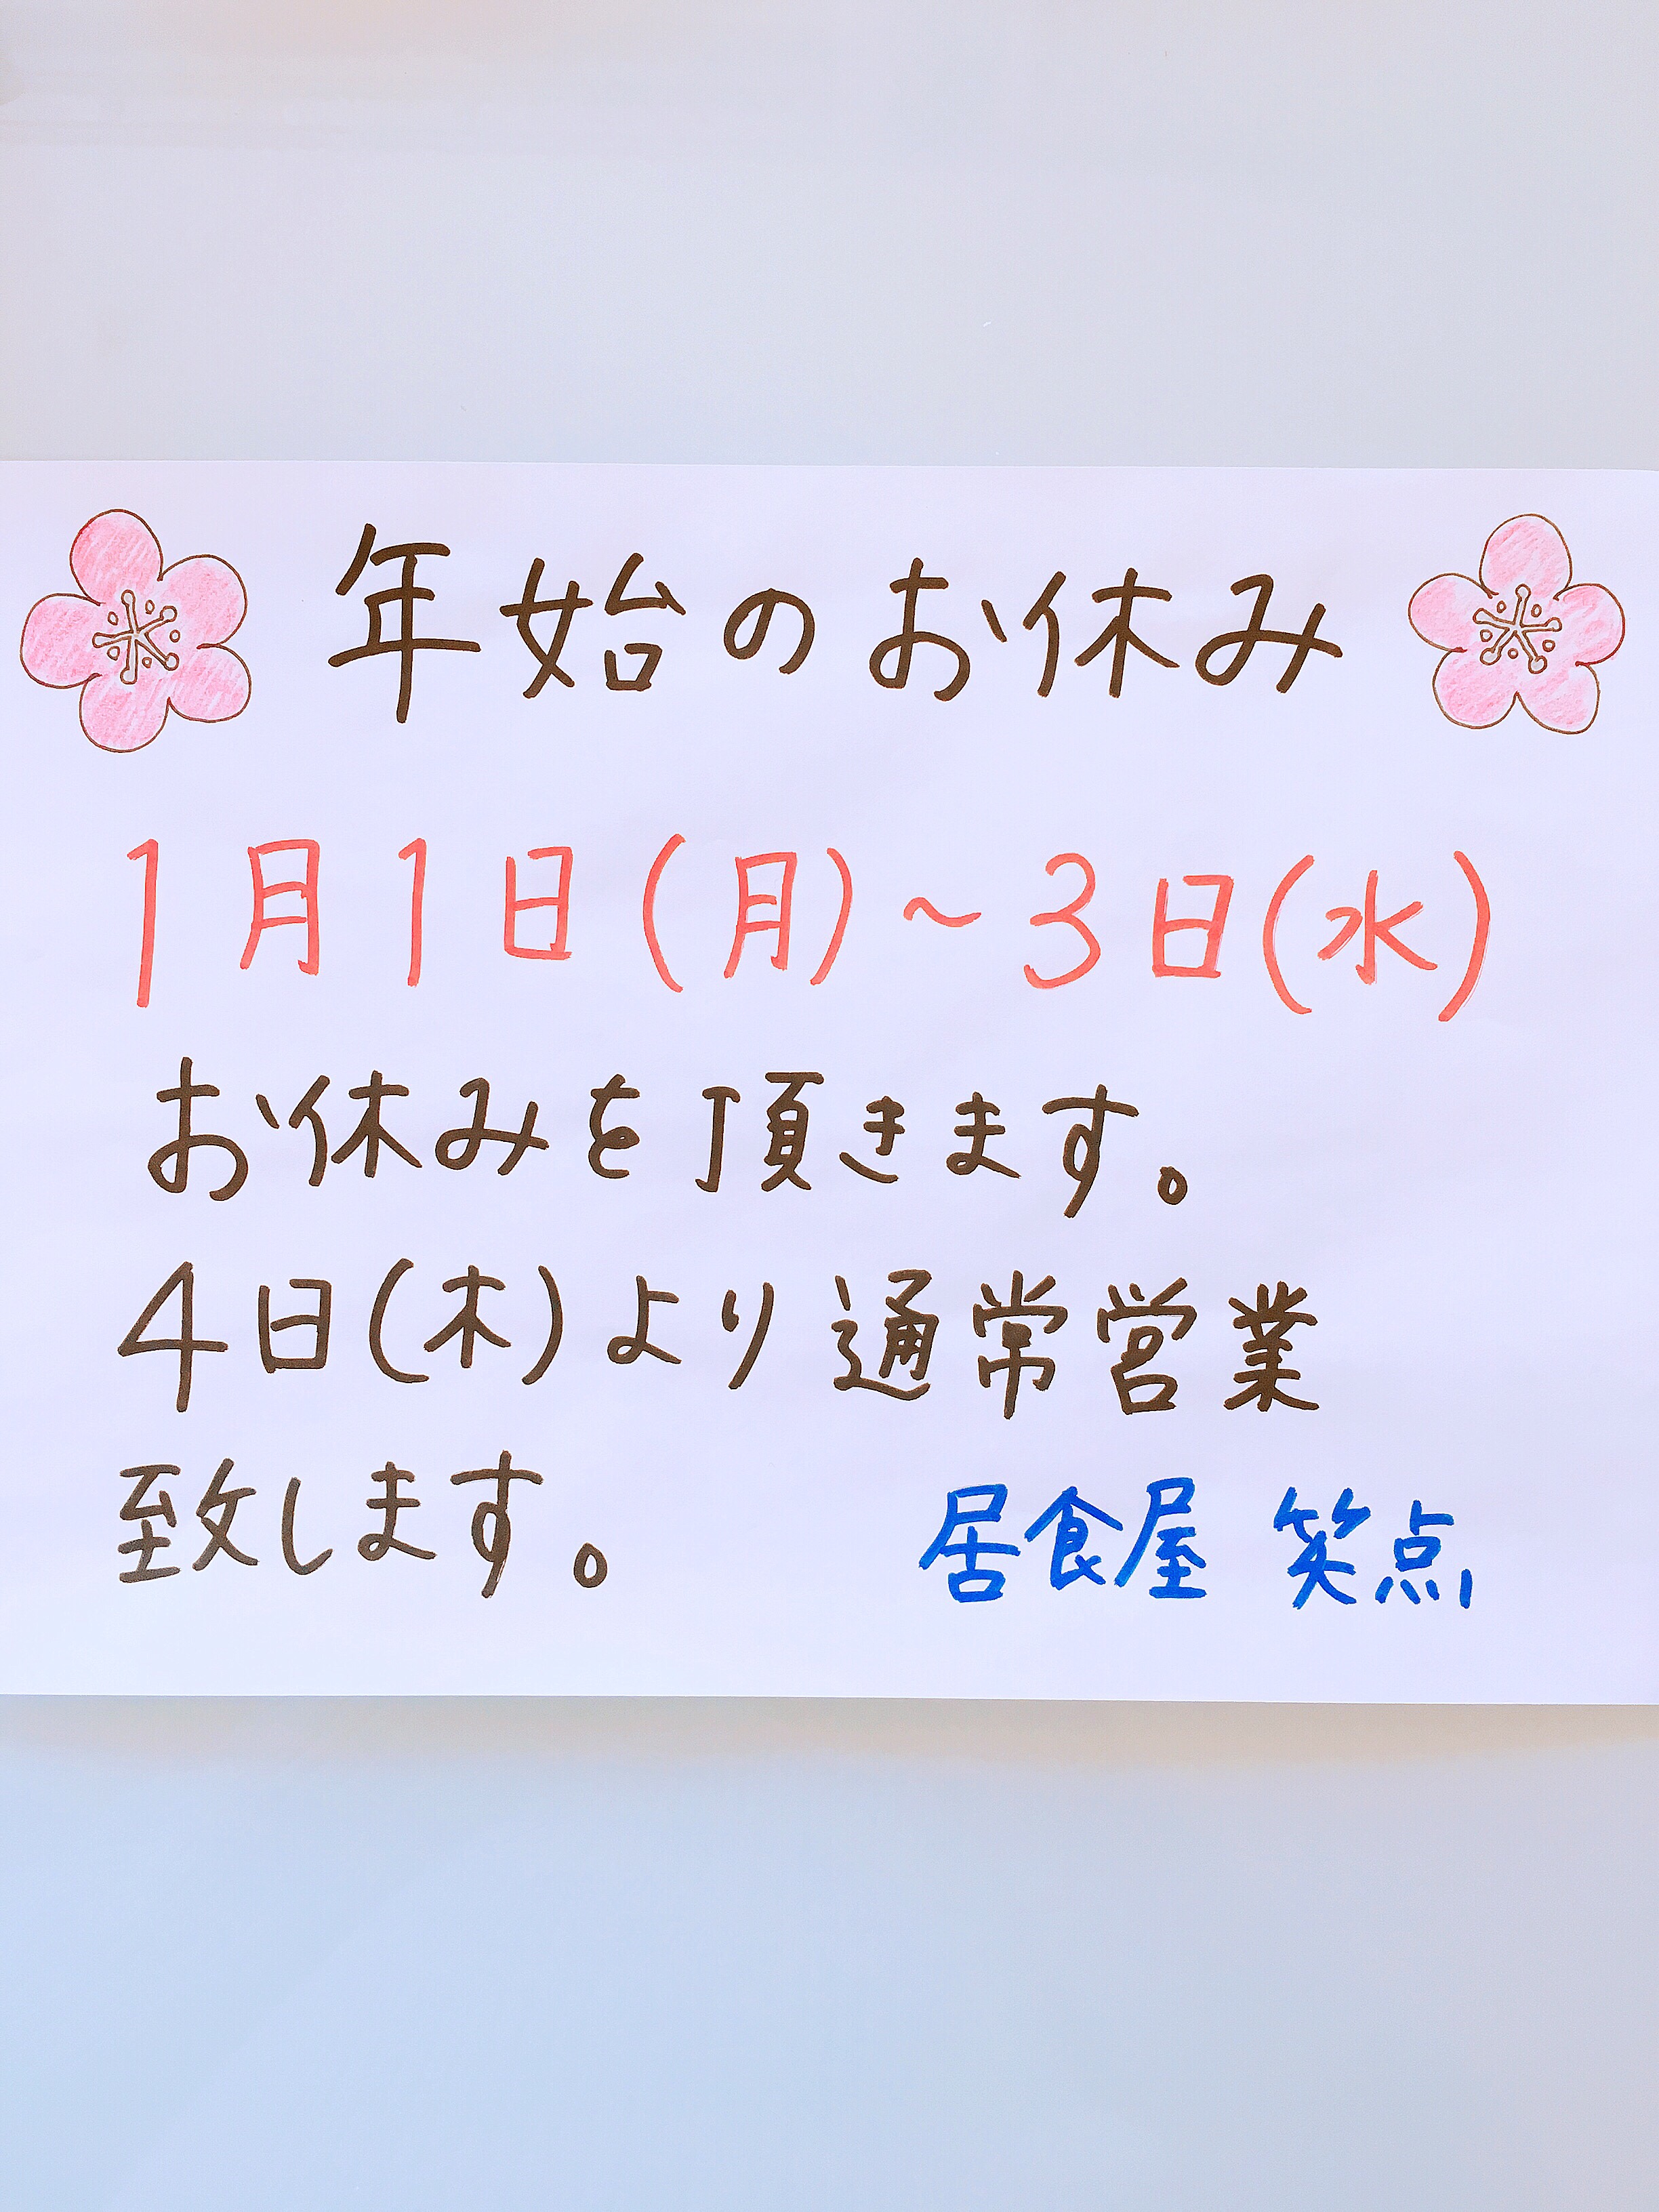 年始のお休み
1月1日(月)～3日(水)
お休みを頂きます。
4日(木)より通常営業
致します。 居食屋 笑点